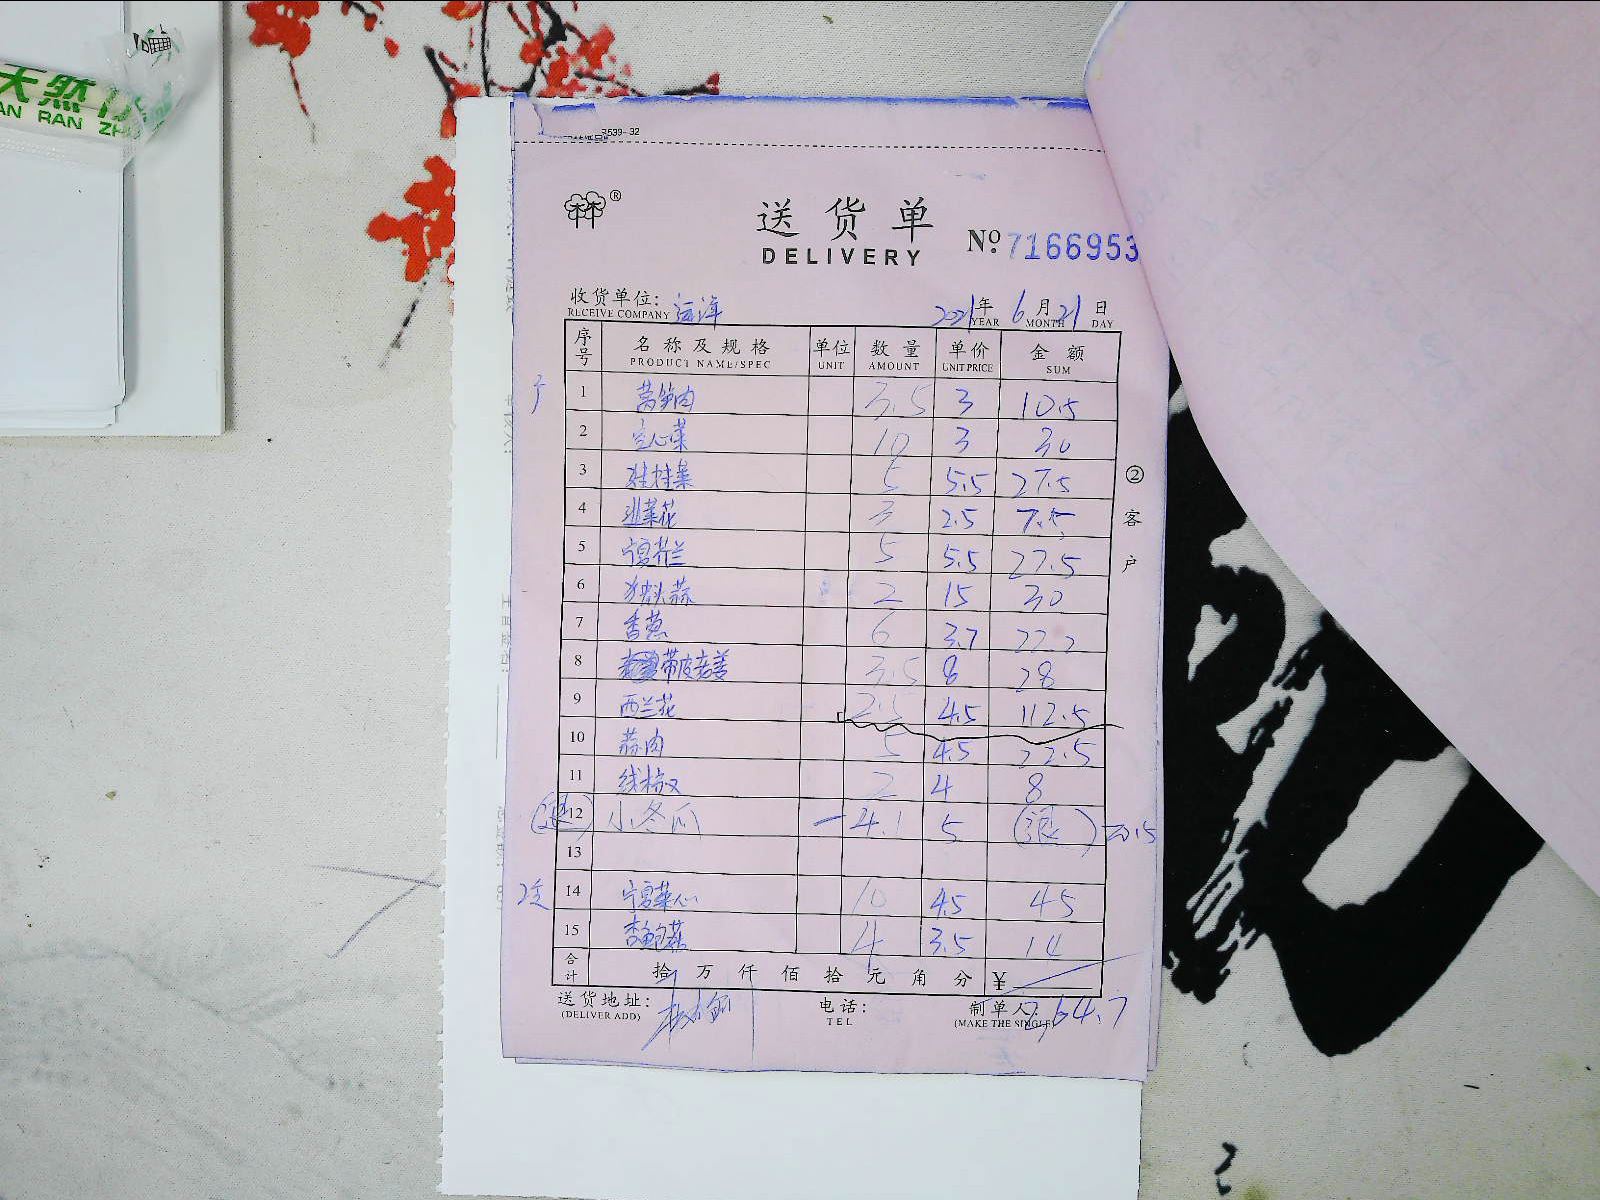 天然
AN RAN ZH
3539-32
送货单
DELIVERY
No. 7166953
收货单位: 远洋 2021年 6月 21日
RECEIVE COMPANY YEAR MONTH DAY
序号 名称及规格 单位 数量 单价 金额
PRODUCT NAME/SPEC UNIT AMOUNT UNIT PRICE SUM
1 莴笋肉 3.5 3 10.5
2 空心菜 10 3 30
3 娃娃菜 5 5.5 27.5
4 韭菜花 3 2.5 7.5
5 宁宫芥兰 5 5.5 27.5
6 独头蒜 2 15 30
7 香葱 6 3.7 22.2
8 带皮老姜 3.5 8 28
9 西兰花 2.5 4.5 112.5
10 蒜肉 5 4.5 22.5
11 线椒 2 4 8
(退) 12 小冬瓜 -4.1 5 (退) -20.5
13
14 宁宫菜心 10 4.5 45
15 杏鲍菇 4 3.5 14
合计 拾 万 仟 佰 拾 元 角 分 ¥
送货地址: 电话: 制单人:
(DELIVER ADD) TEL (MAKE THE SINGLE)
264.7
②客户